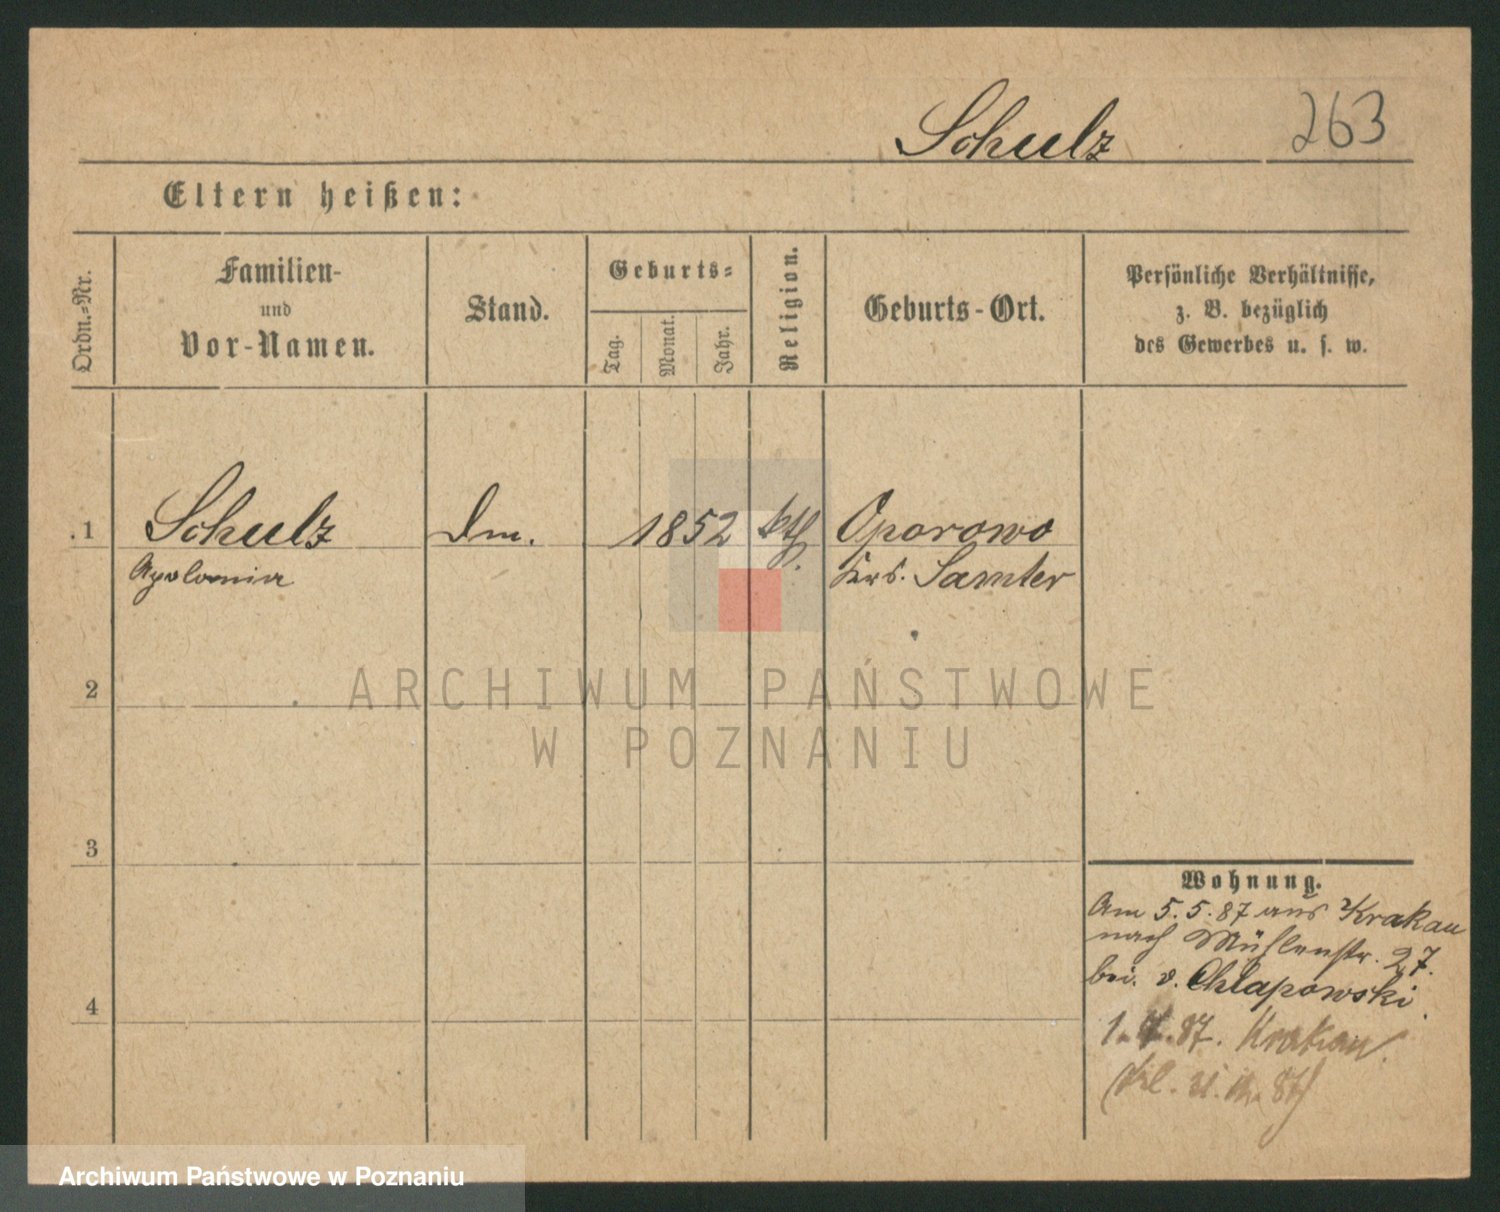 Schulz 263
Eltern heißen:
Ordn.-Nr.
Familien-
und
Vor-Namen.
Stand.
Geburts-
Tag.
Monat.
Jahr.
Religion.
Geburts-Ort.
Persönliche Verhältnisse,
z. B. bezüglich
des Gewerbes u. s. w.
1 Schulz Dm. 1852 kth. Oporowo
Apolonia Krs. Samter
2
ARCHIWUM PAŃSTWOWE
W POZNANIU
3
Wohnung.
Am 5.5.87 aus Krakau
nach Mühlenstr. 27.
bei v. Chlapowski
4
87. Krakau.
Archiwum Państwowe w Poznaniu